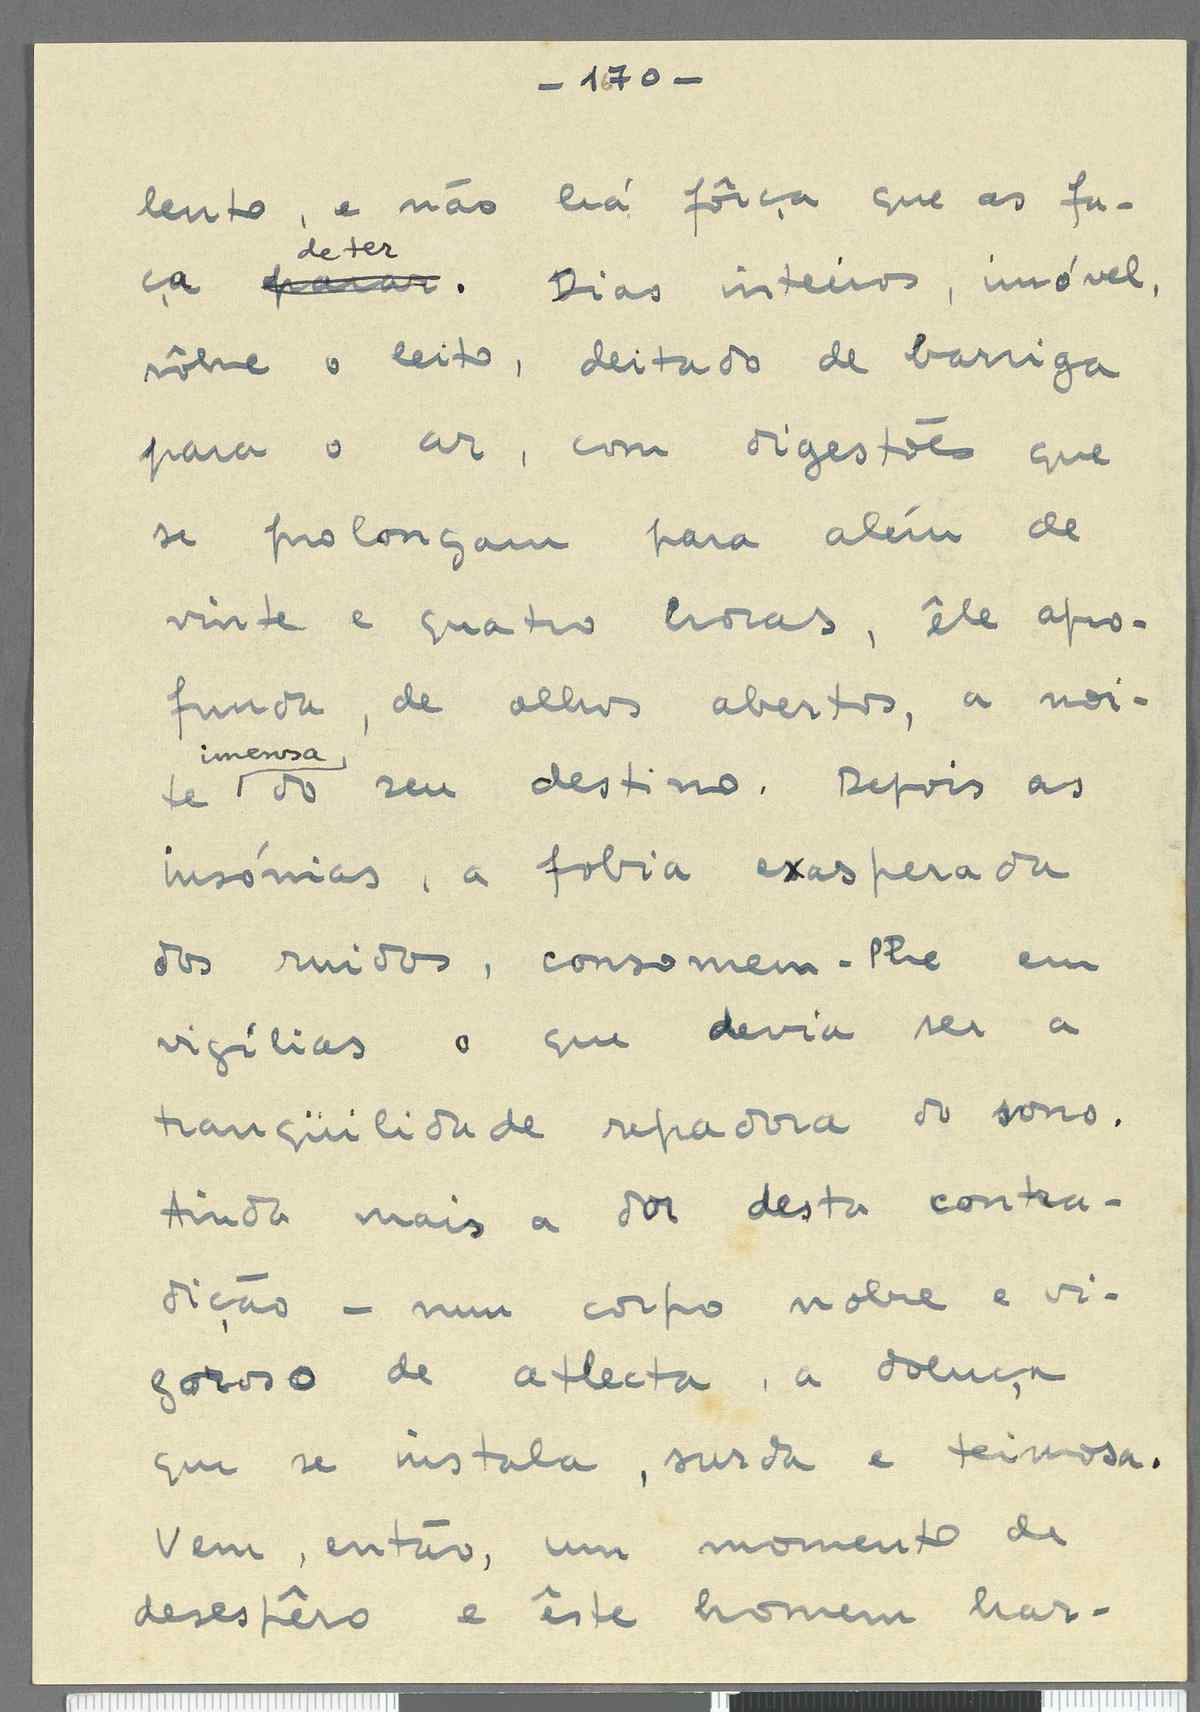 - 170 -
lento, e não há fôrça que as fa-
deter
ça parar. Dias inteiros, imóvel,
sôbre o leito, deitado de barriga
para o ar, com digestões que
se prolongam para além de
vinte e quatro horas, êle apro-
funda, de olhos abertos, a noi-
imensa
te do seu destino. Depois as
insónias, a fobia exasperada
dos ruidos, consomem-lhe em
vigílias o que devia ser a
tranqüilidade repadora do sono.
Ainda mais a dor desta contra-
dição - num corpo nobre e vi-
goroso de atlecta, a doença
que se instala, surda e teimosa.
Vem, então, um momento de
desespêro e êste homem har-